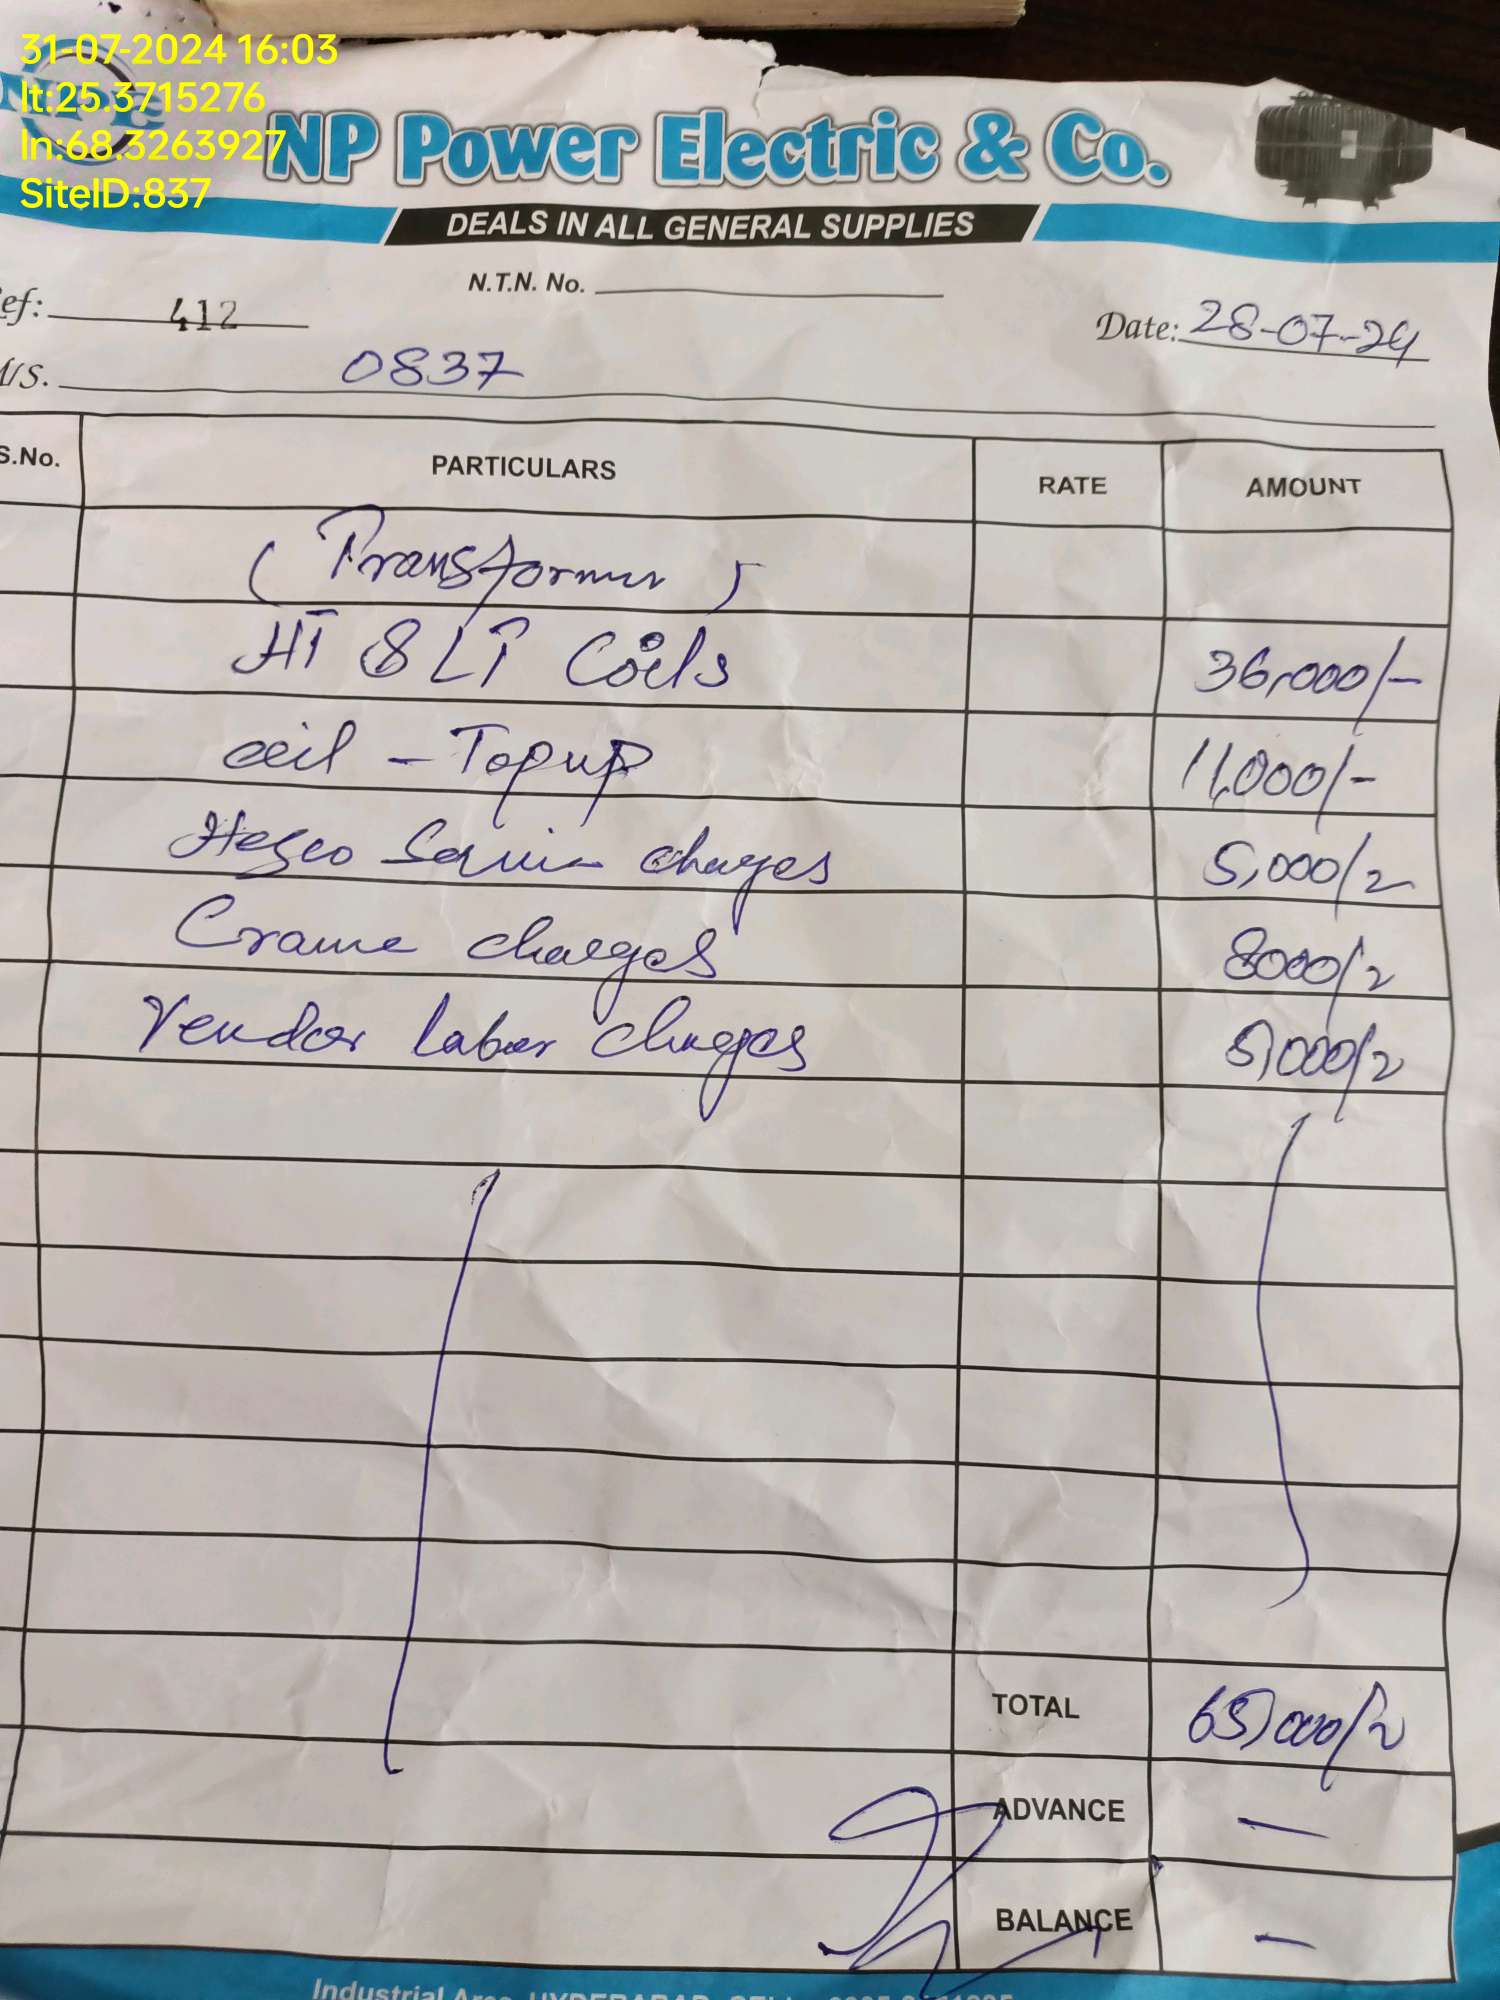 31-07-2024 16:03
lt:25.3715276
ln:68.3263927
SiteID:837
NP Power Electric & Co.
DEALS IN ALL GENERAL SUPPLIES
N.T.N. No.
ef: 412
Date: 28-07-24
/S. 0837
S.No. PARTICULARS RATE AMOUNT
(Transformer)
HT & LT Coils 36,000/-
oil - Topup 11,000/-
Hesco Service charges 5,000/-
Crane charges 8000/-
Vendor labor charges 5,000/-
TOTAL 65,000/-
ADVANCE —
BALANCE —
Industrial Area, HYDERABAD